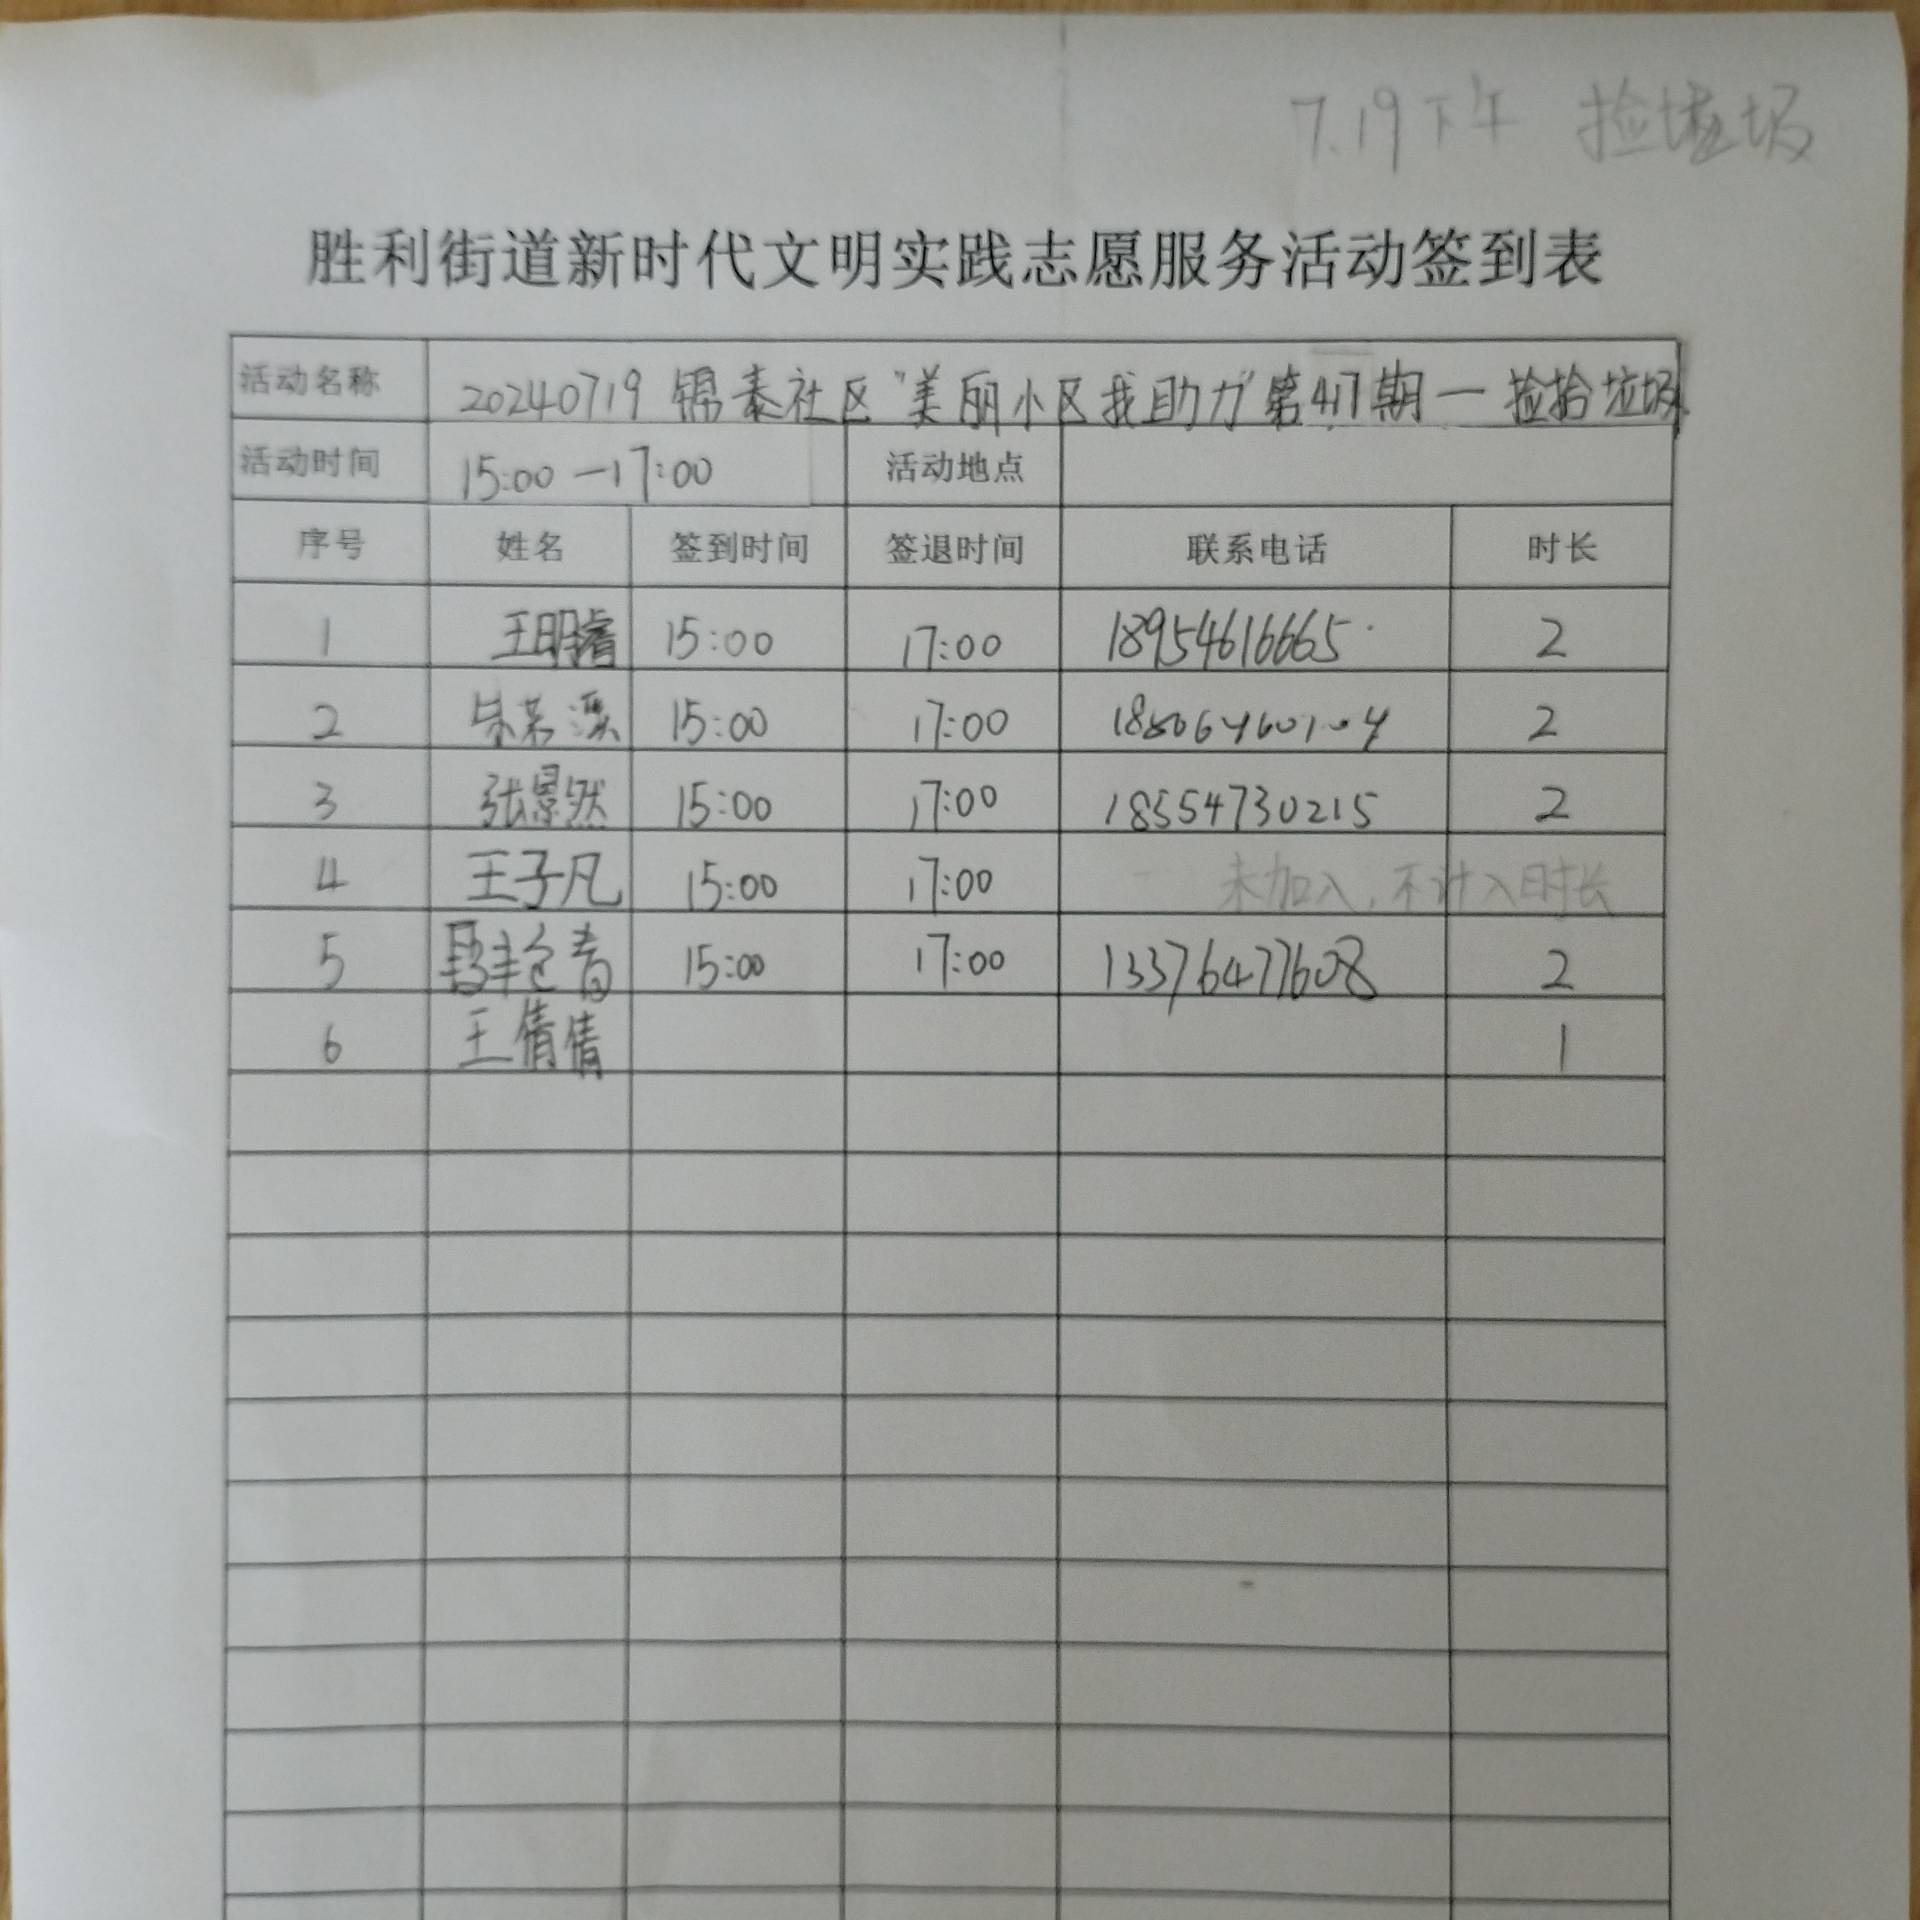 7.19下午 捡垃圾
胜利街道新时代文明实践志愿服务活动签到表
活动名称 20240719 锦泰社区"美丽小区我助力"第417期一捡拾垃圾
活动时间 15:00—17:00 活动地点
序号 姓名 签到时间 签退时间 联系电话 时长
1 王明睿 15:00 17:00 18954616665 2
2 15:00 17:00 2
3 张景然 15:00 17:00 18554730215 2
4 王子凡 15:00 17:00 未加入,不计入时长
5 15:00 17:00 13376477608 2
6 王倩倩 1